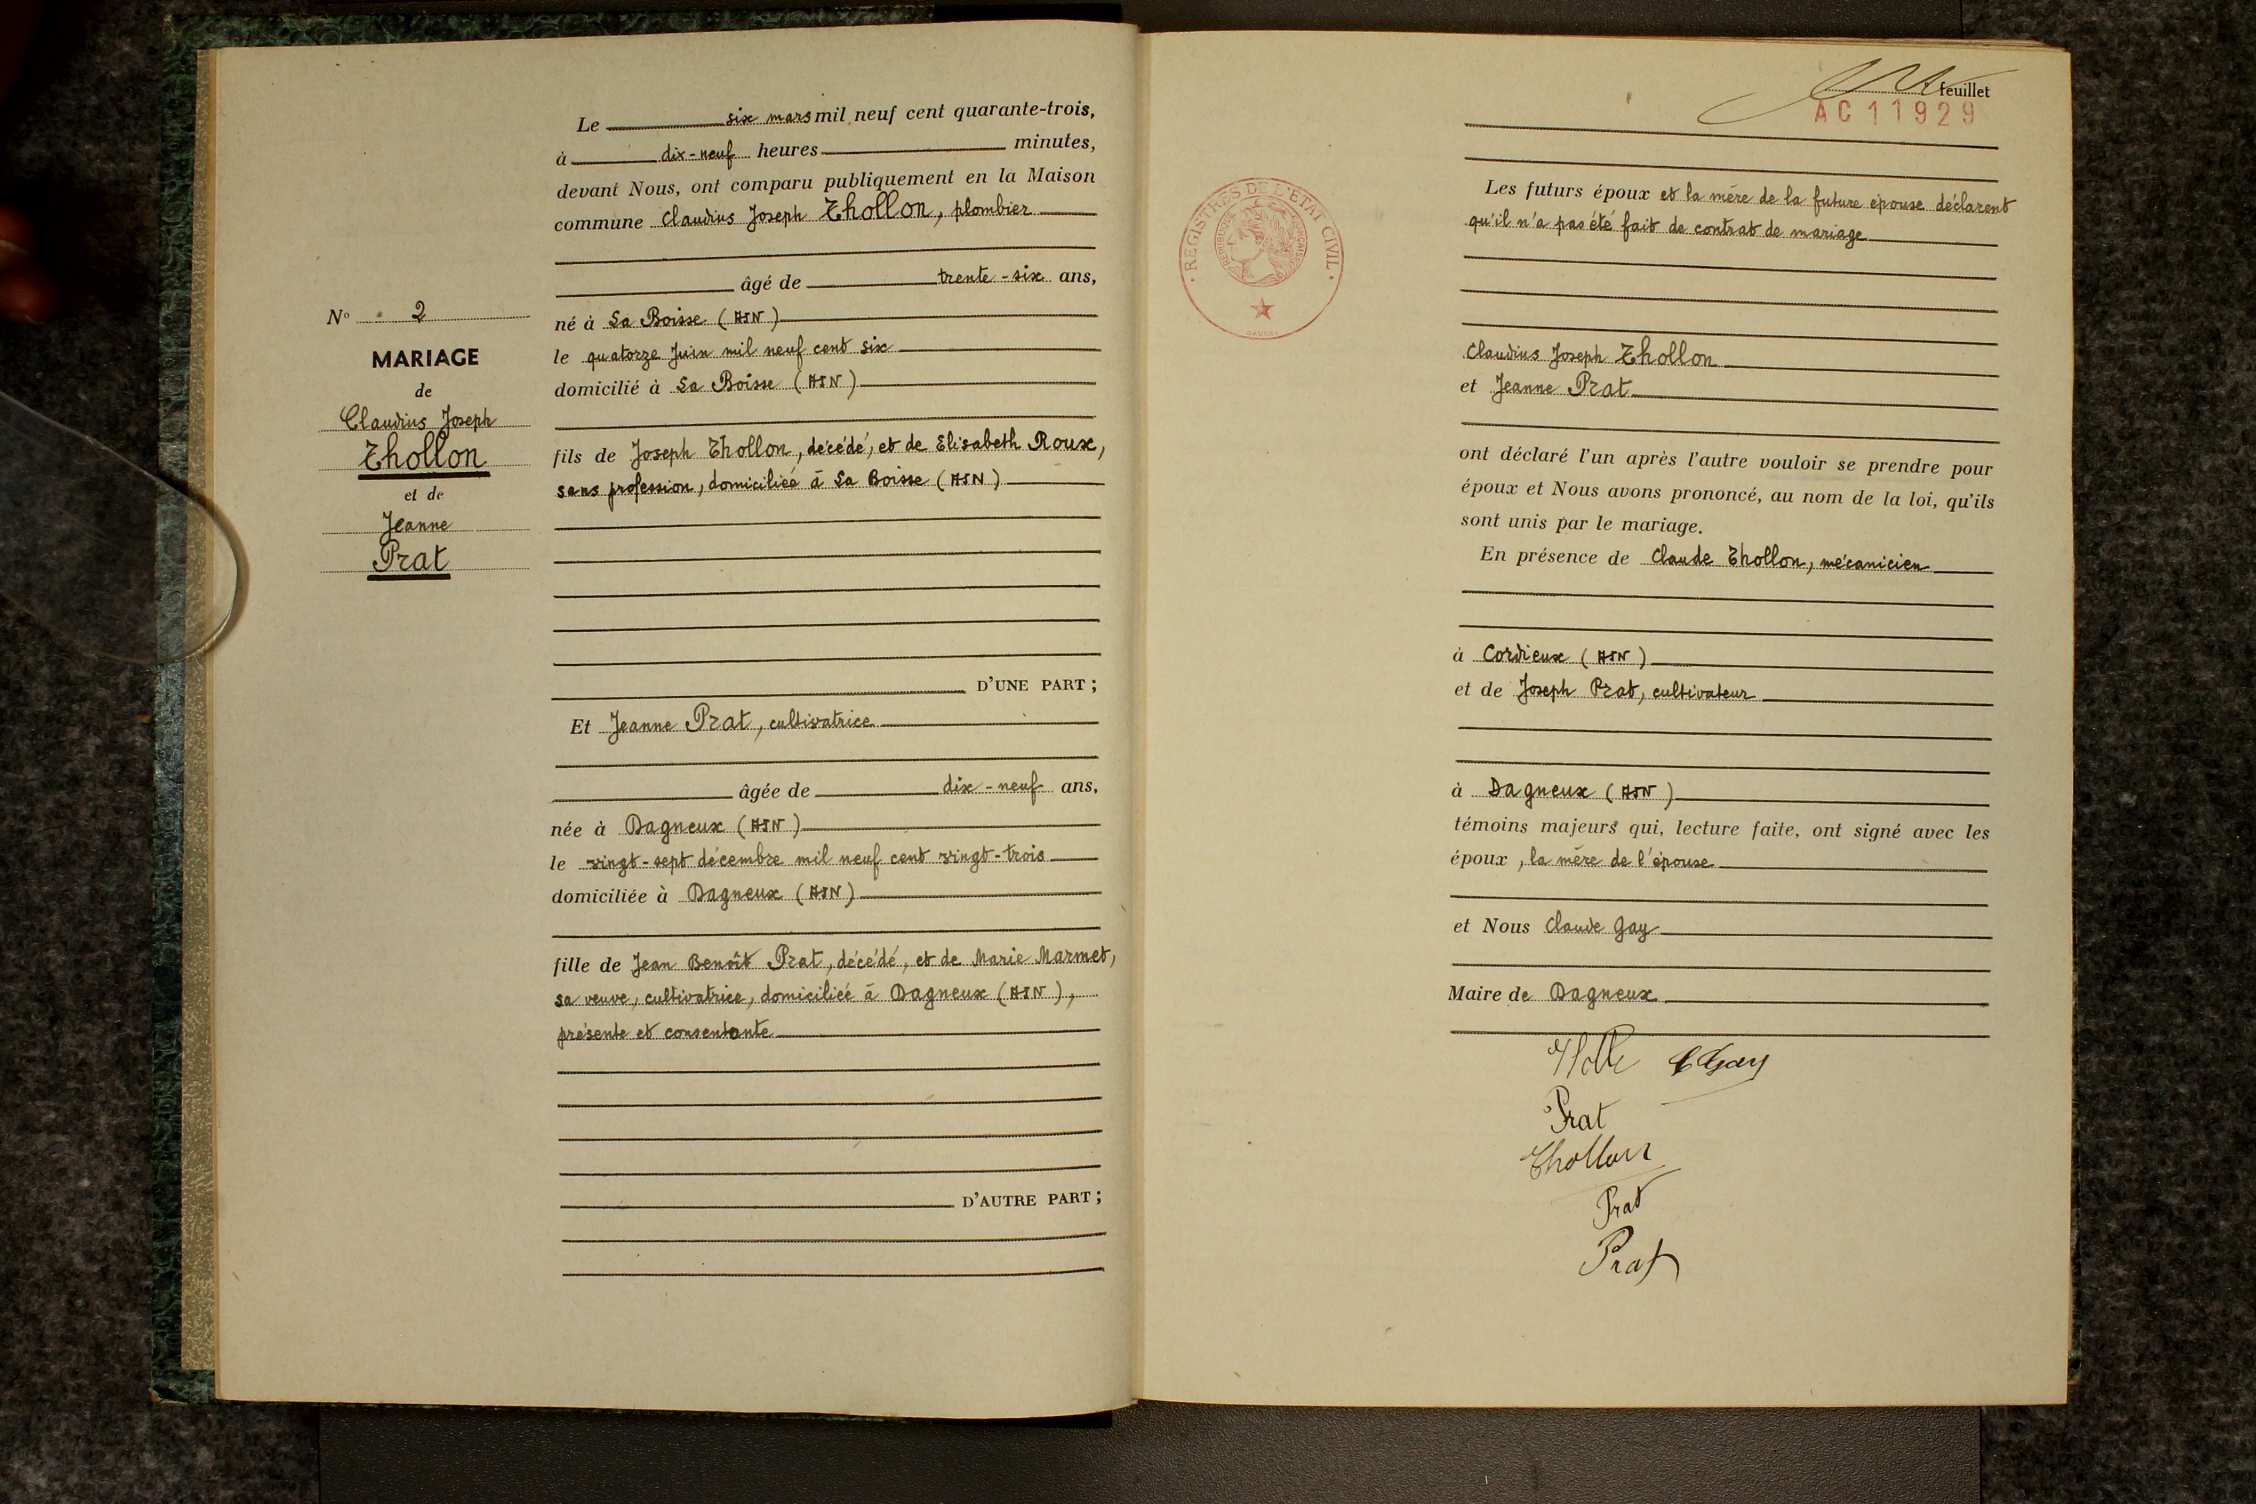 Le six mars mil neuf cent quarante-trois,
à dix-neuf heures minutes,
devant Nous, ont comparu publiquement en la Maison
commune Claudius Joseph Thollon, plombier
âgé de trente-six ans,
né à La Boisse (AIN)
le quatorze Juin mil neuf cent six
domicilié à La Boisse (AIN)
fils de Joseph Thollon, décédé, et de Elisabeth Roux,
sans profession, domiciliée à La Boisse (AIN)
D'UNE PART ;
Et Jeanne Prat, cultivatrice
âgée de dix-neuf ans,
née à Dagneux (AIN)
le vingt-sept décembre mil neuf cent vingt-trois
domiciliée à Dagneux (AIN)
fille de Jean Benoît Prat, décédé, et de Marie Marmet,
sa veuve, cultivatrice, domiciliée à Dagneux (AIN),
présente et consentante
D'AUTRE PART ;
N° 2
MARIAGE
de
Claudius Joseph
Thollon
et de
Jeanne
Prat
feuillet
AC 11929
REGISTRES DE L'ETAT CIVIL
REPUBLIQUE FRANÇAISE
Les futurs époux et la mère de la future épouse déclarent
qu'il n'a pas été fait de contrat de mariage
Claudius Joseph Thollon
et Jeanne Prat
ont déclaré l'un après l'autre vouloir se prendre pour
époux et Nous avons prononcé, au nom de la loi, qu'ils
sont unis par le mariage.
En présence de Claude Thollon, mécanicien
à Cordieux (AIN)
et de Joseph Prat, cultivateur
à Dagneux (AIN)
témoins majeurs qui, lecture faite, ont signé avec les
époux, la mère de l'épouse
et Nous Claude Gay
Maire de Dagneux
C Gay
Prat
Thollon
Prat
Prat